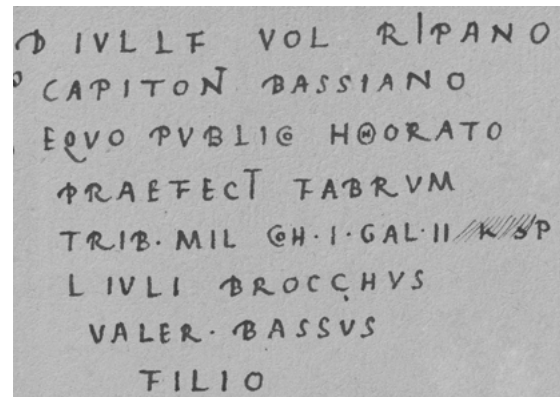 D IVL L F VOL RIPANO
CAPITON BASSIANO
EQVO PVBLICO HONORATO
PRAEFECT FABRVM
TRIB·MIL COH·I·GAL·II SP
L IVLI BROCCHVS
VALER·BASSVS
FILIO